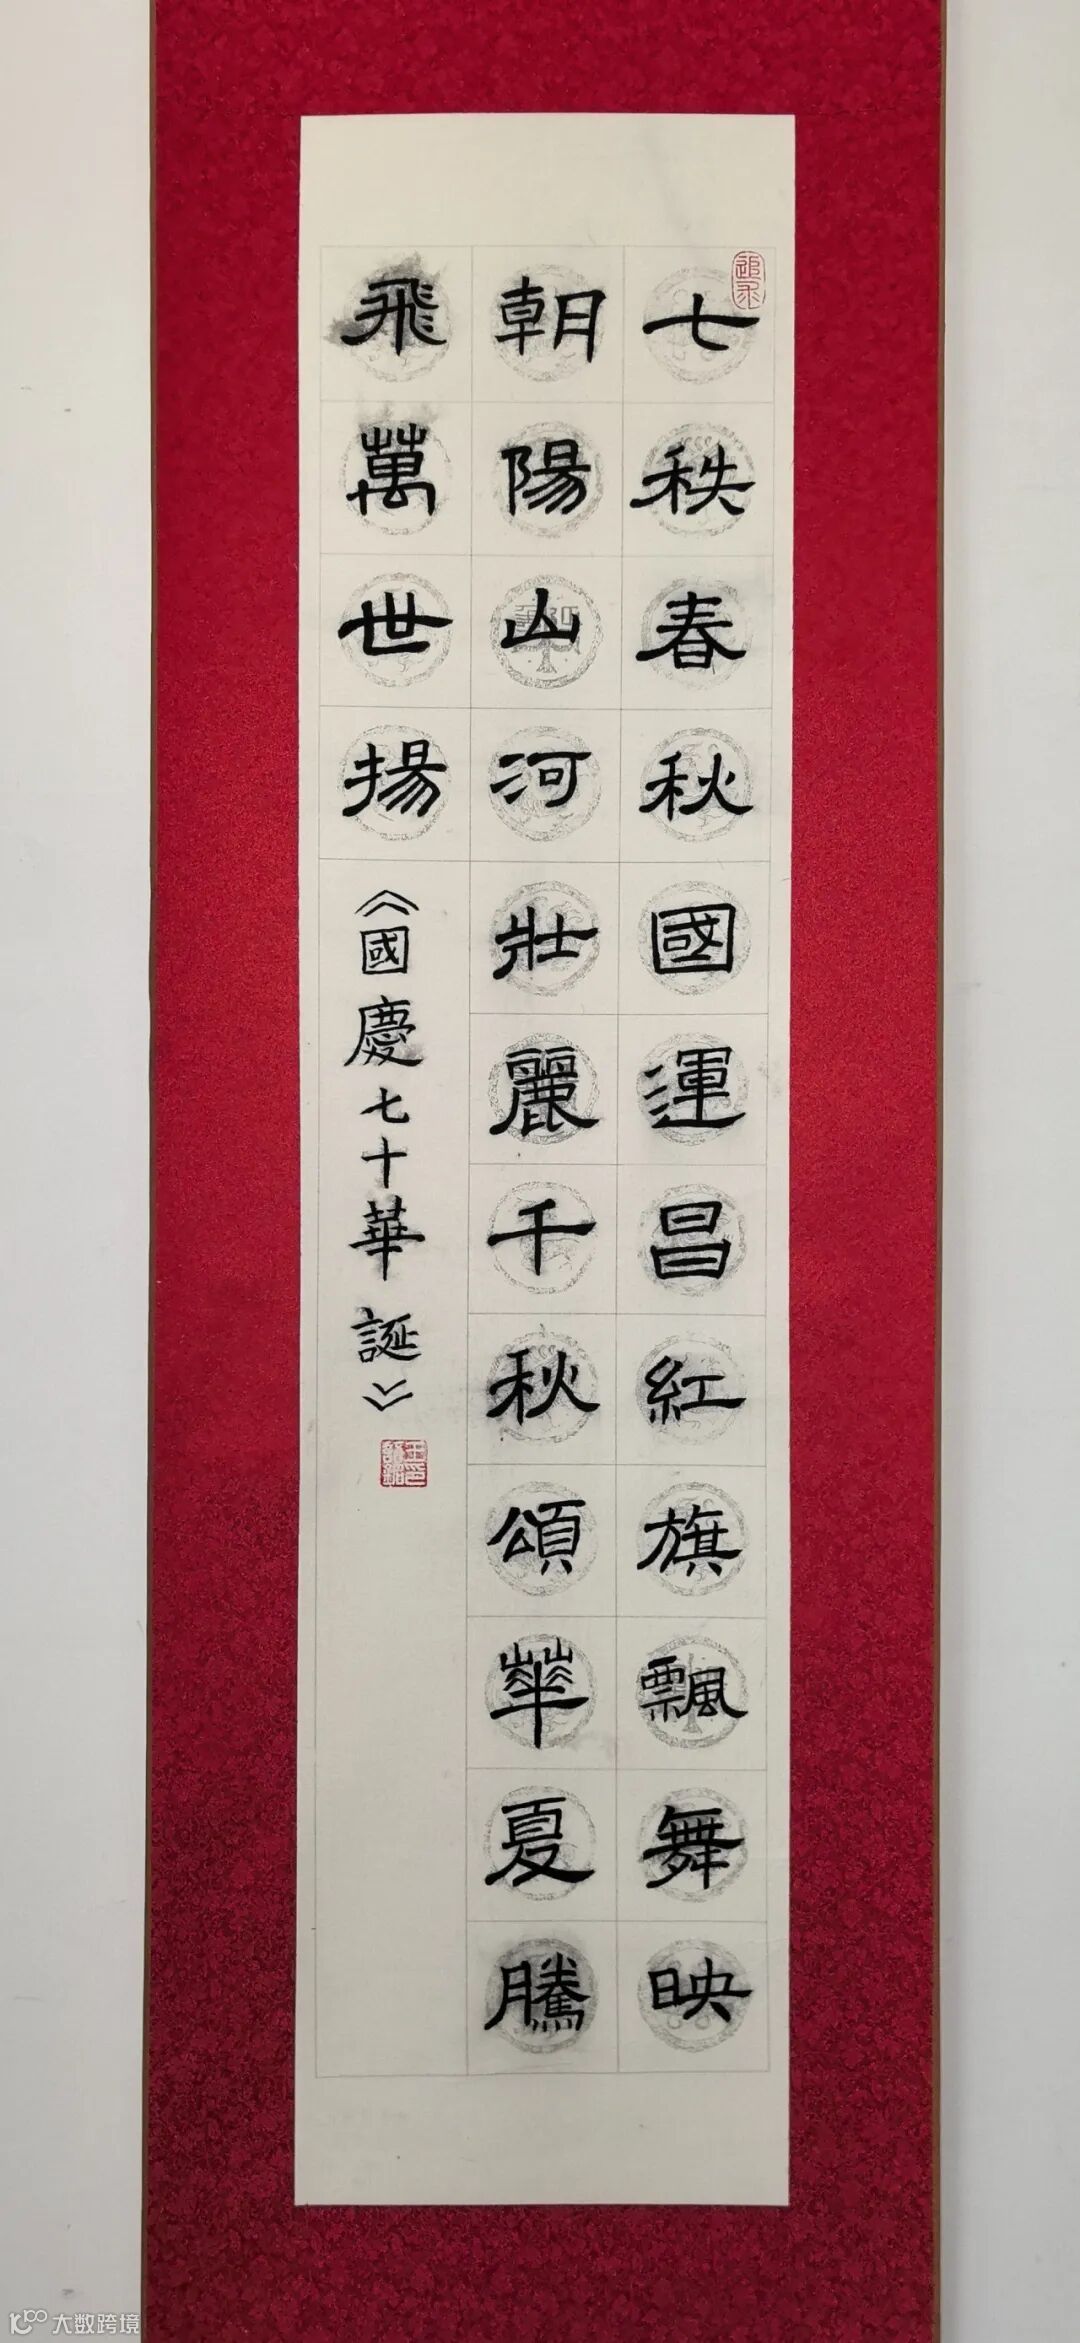 七秩春秋國運昌紅旗飄舞映
朝陽山河壯麗千秋頌華夏騰
飛萬世揚
《國慶七十華誕》
大数跨境